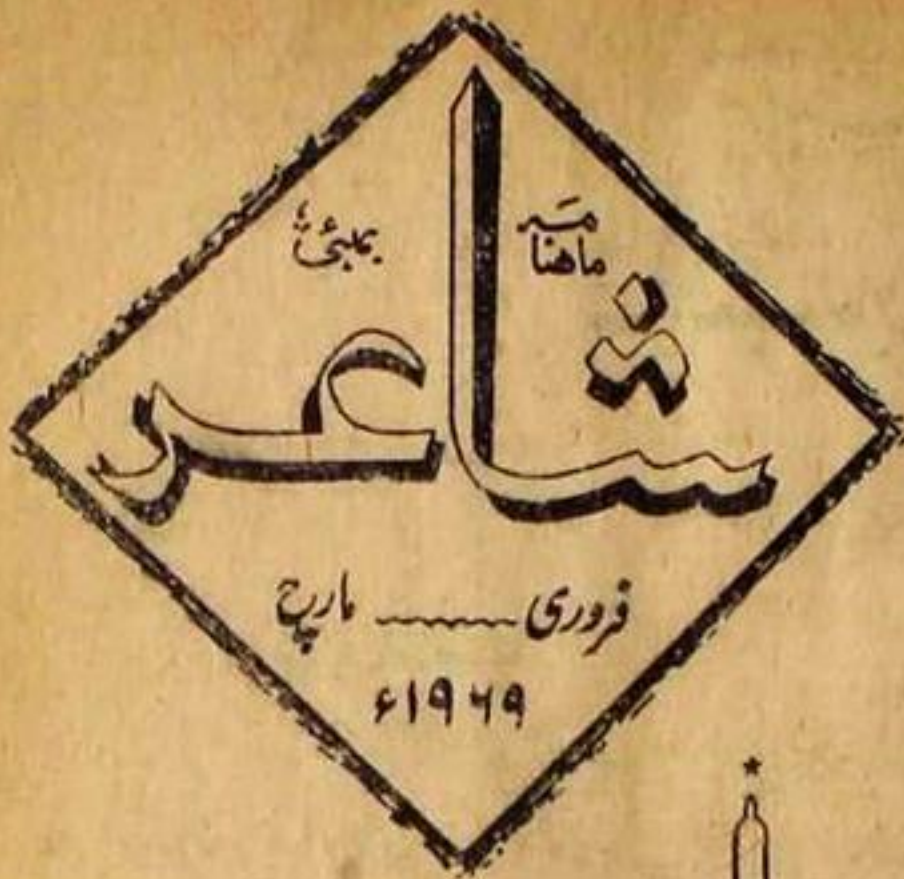 ماهنامہ بمبئی
شاعر
فروری ــــــ مارچ
۱۹۶۹ء